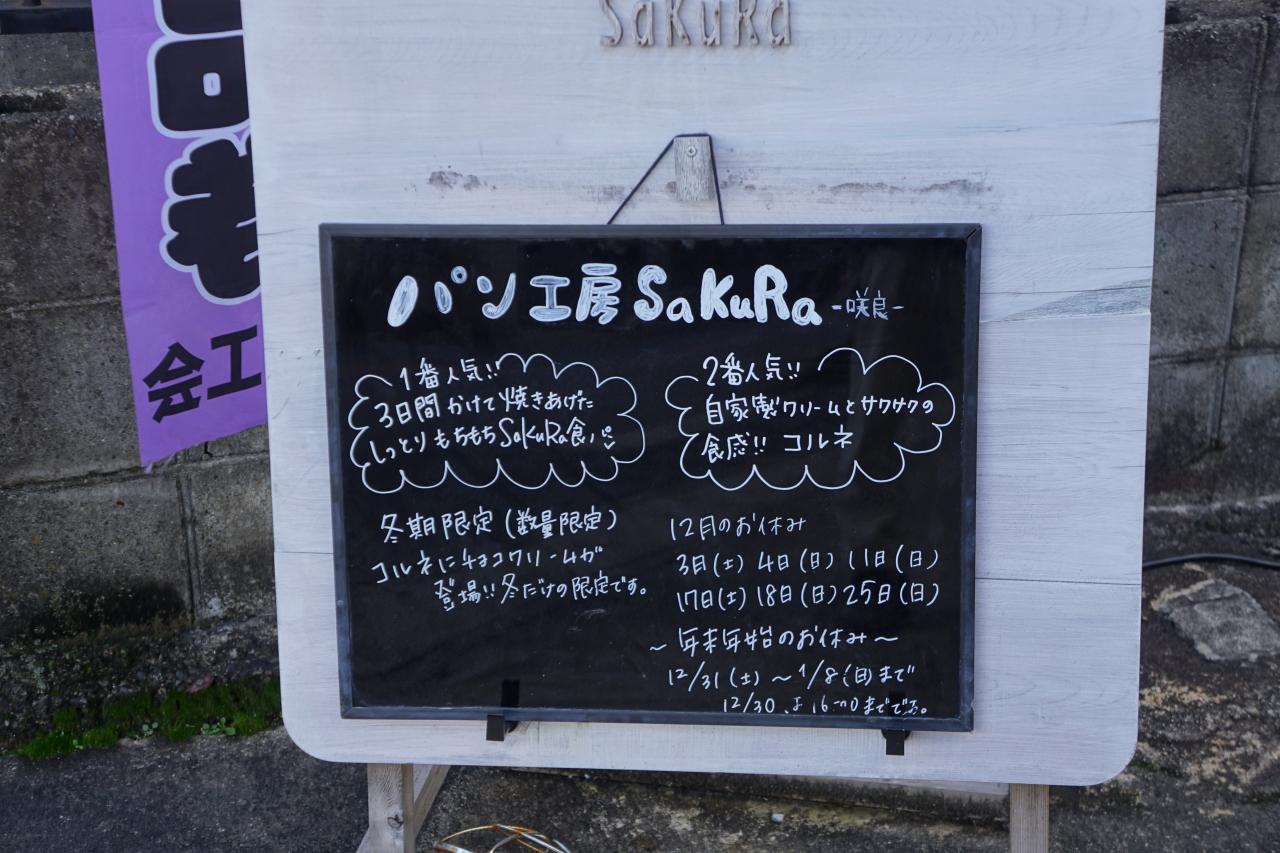 SaKuRa
パン工房 SaKuRa -咲良-
1番人気!!
3日間かけて焼きあげた
しっとりもちもちSaKuRa食パン
2番人気!!
自家製クリームとサクサクの
食感!! コルネ
冬期限定(数量限定)
コルネにチョコクリームが
登場!!冬だけの限定です。
12月のお休み
3日(土) 4日(日) 11日(日)
17日(土) 18日(日) 25日(日)
～年末年始のお休み～
12/31(土)～1/8(日)まで
12/30 16:00までです。
会工